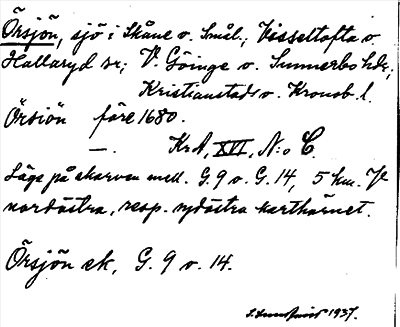 Örsjön, sjö i Skåne o. Smål.; Visseltofta o
Hallaryd sr; V. Göinge o. Sunnerbo hdr;
Kristianstads o. Kronob. l.
Örsiön före 1680.
—. KrA, XVI, N:o C.
Läge på skarven mell. G. 9 o. G. 14, 5 km.
nordöstra, resp. sydöstra karthörnet.
Örsjön ek, G. 9 o. 14.
1937.